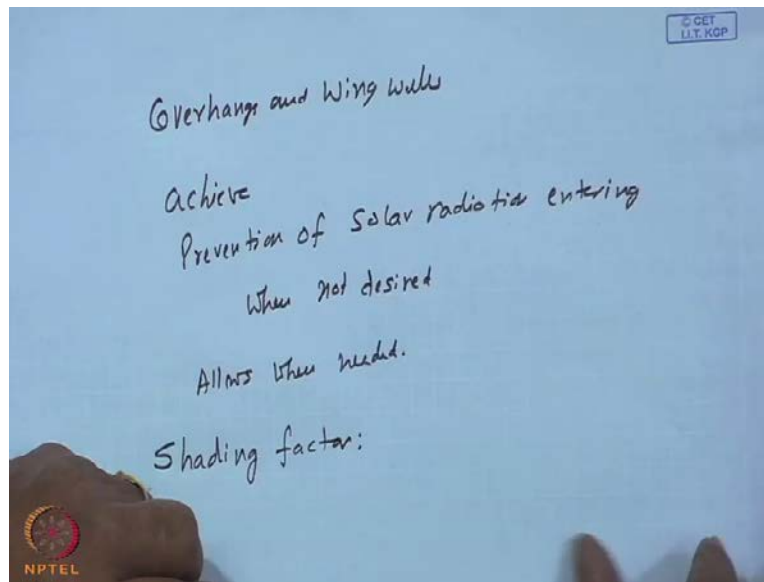 © CET
I.I.T. KGP
Overhangs and Wing walls
achieve
Prevention of Solar radiation entering
When not desired
Allows when needed.
Shading factor:
NPTEL